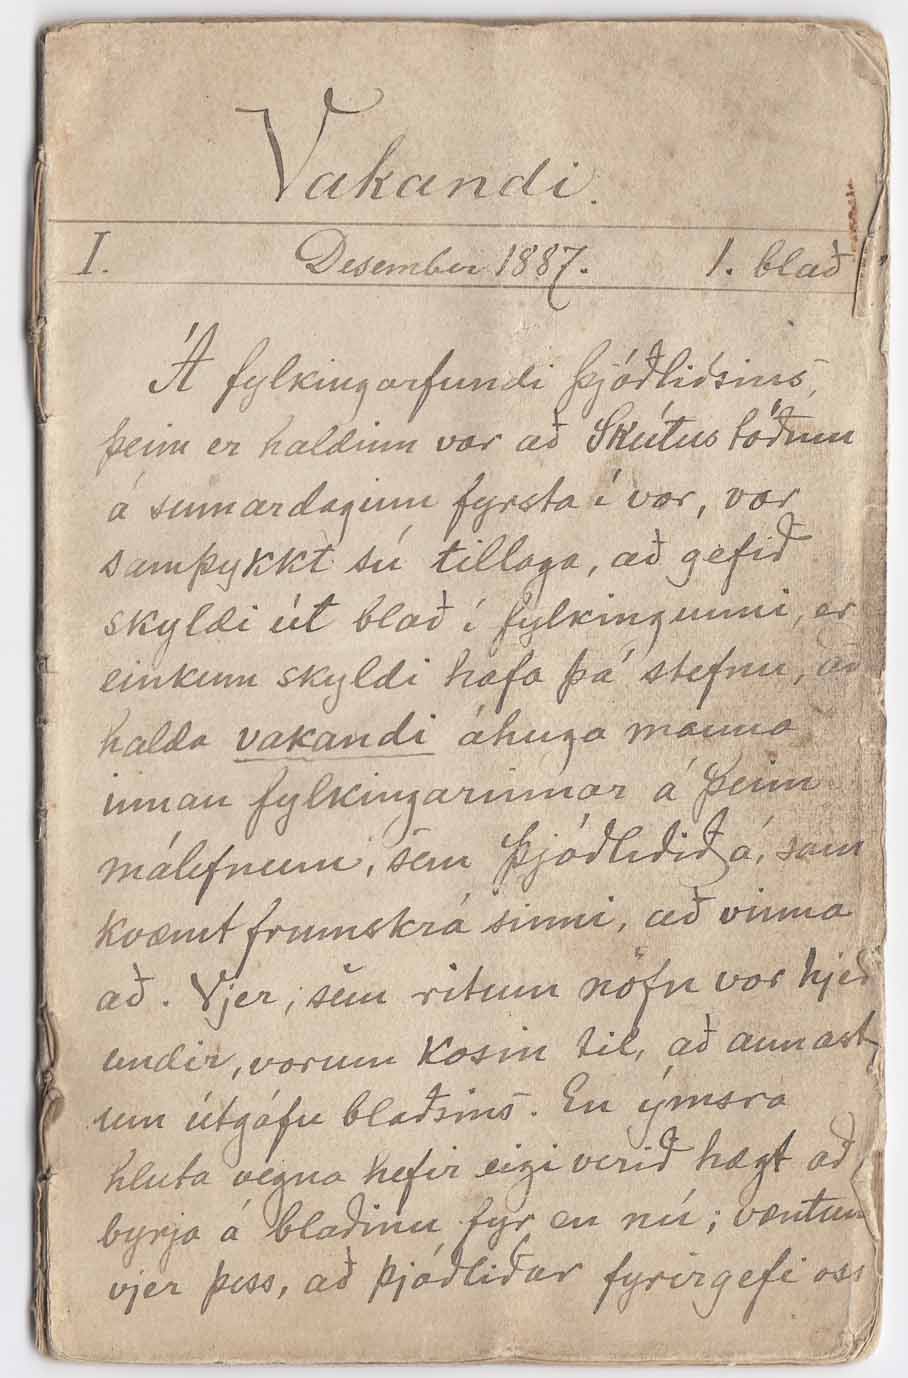 Vakandi.
I. Desember 1887. 1. blað
Á fylkingarfundi Þjóðliðsins,
þeim er haldinn var að Skútustöðum
á sumardaginn fyrsta í vor, var
samþykkt sú tillaga, að gefið
skyldi út blað í fylkingunni, er
einkum skyldi hafa þá stefnu, að
halda vakandi áhuga manna
innan fylkingarinnar á þeim
málefnum, sem Þjóðliðið á, sam
kvæmt frumskrá sinni, að vinna
að. Vjer, sem ritum nöfn vor hjer
undir, vorum kosin til, að annast
um útgáfu blaðsins. En ýmsra
hluta vegna hefir eigi verið hægt að
byrja á blaðinu fyr en nú; væntum
vjer þess, að þjóðliðar fyrirgefi oss